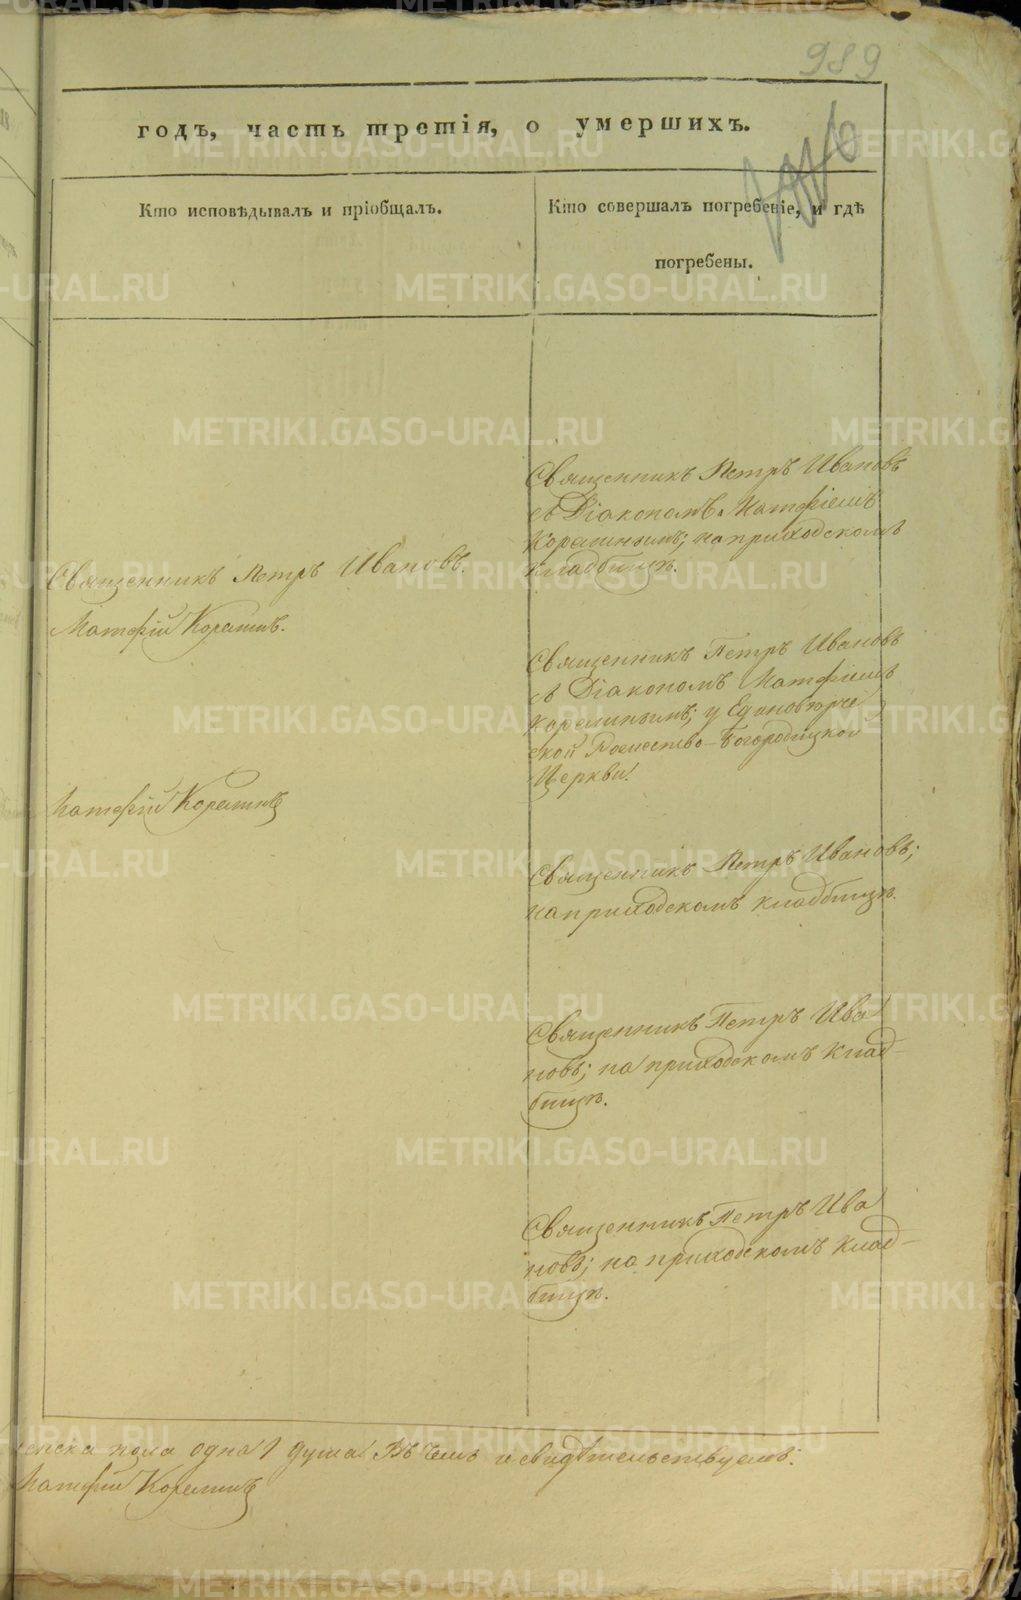 989
годъ, часть третія, о умершихъ.
Кто исповѣдывалъ и пріобщалъ.
Кто совершалъ погребеніе, и гдѣ
погребены.
Священникъ Петръ Ивановъ
съ Діакономъ Матфіемъ
Корелинымъ; на приходскомъ
кладбищѣ.
Священникъ Петръ Ивановъ.
Матфій Корелинъ.
Священникъ Петръ Ивановъ
съ Діакономъ Матфіемъ
Корелинымъ; у Единовѣрче
ской Рождество-Богородицкой
Церкви.
Матфій Корелинъ
Священникъ Петръ Ивановъ;
на приходскомъ кладбищѣ.
Священникъ Петръ Ива
новъ; на приходскомъ клад-
бищѣ.
Священникъ Петръ Ива
новъ; на приходскомъ клад-
бищѣ.
женска пола одна 1 душа. Въ чемъ и свидѣтельствуемъ:
Матфій Корелинъ
METRIKI.GASO-URAL.RU